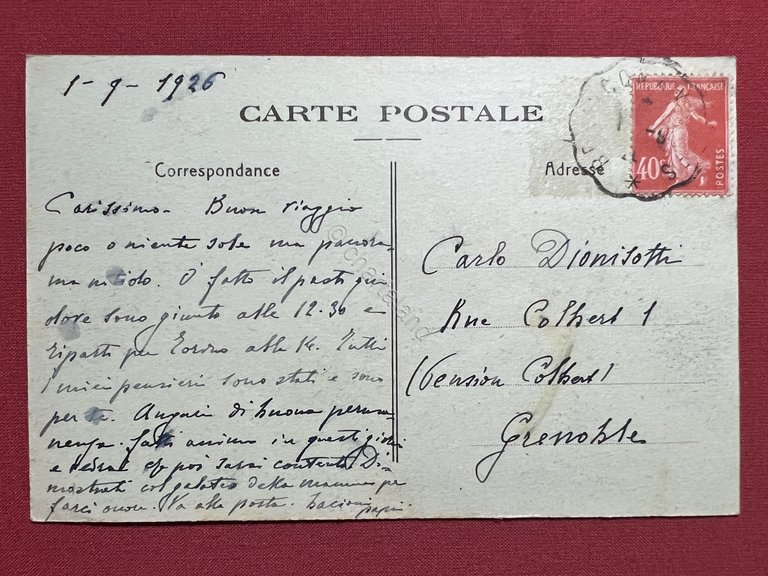 1-9-1926
CARTE POSTALE
Correspondance
Adresse
REPUBLIQUE FRANÇAISE
40c
POSTES
Carissimo - Buon viaggio
poco o niente sole ma panora-
ma nitido. O fatto il pasto qui
dove sono giunto alle 12.30 e
riparto per Torino alle 14. Tutti
i miei pensieri sono stati e sono
per te. Auguri di buona perma-
nenza. fatti animo in questi giorni
e vedrai che poi sarai contento. Di-
mostrati col galateo della mamma per
farci onore. Va alla posta. bacioni
papà
Carlo Dionisotti
Rue Colbert 1
(Pension Colbert)
Grenoble